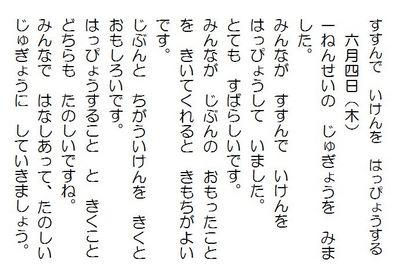 すすんで いけんを はっぴょうする
六月四日(木)
一ねんせいの じゅぎょうを みま
した。
みんなが すすんで いけんを
はっぴょうして いました。
とても すばらしいです。
みんなが じぶんの おもったこと
を きいてくれると きもちがよい
です。
じぶんと ちがういけんを きくと
おもしろいです。
はっぴょうすること と きくこと
どちらも たのしいですね。
みんなで はなしあって、たのしい
じゅぎょうに していきましょう。